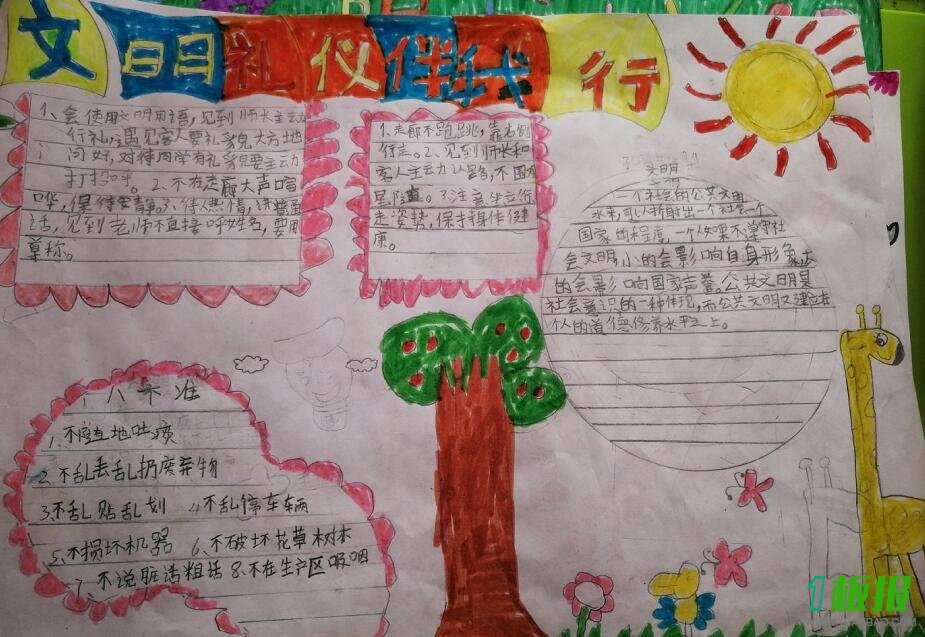 文明礼仪伴我行
1、会使用文明用语，见到师长主动
行礼，遇见客人要礼貌大方地
问好，对待同学有礼貌要主动
打招呼。2、不在走廊大声喧
哗，保持安静。3、待人热情，讲普通
话，见到老师不直接呼姓名，要用
尊称。
1、走廊不跑跳，靠右侧
行走。2、见到师长和
客人主动让路，不围
3、注意坐立行
走姿势，保持身体健
康。
文明
一个社会的公共文明
水平，可以折射出一个社会一个
国家的程度，一个人如果不遵守社
会文明，小的会影响自身形象，大
的会影响国家声誉。公共文明是
社会意识的一种体现，而公共文明又建立在
个人的道德修养水平之上。
八不准
1、不随地吐痰
2、不乱丢乱扔废弃物
3、不乱贴乱划 4、不乱停车辆
5、不损坏机器 6、不破坏花草树木
7、不说脏话粗话 8、不在生产区吸烟
1板报